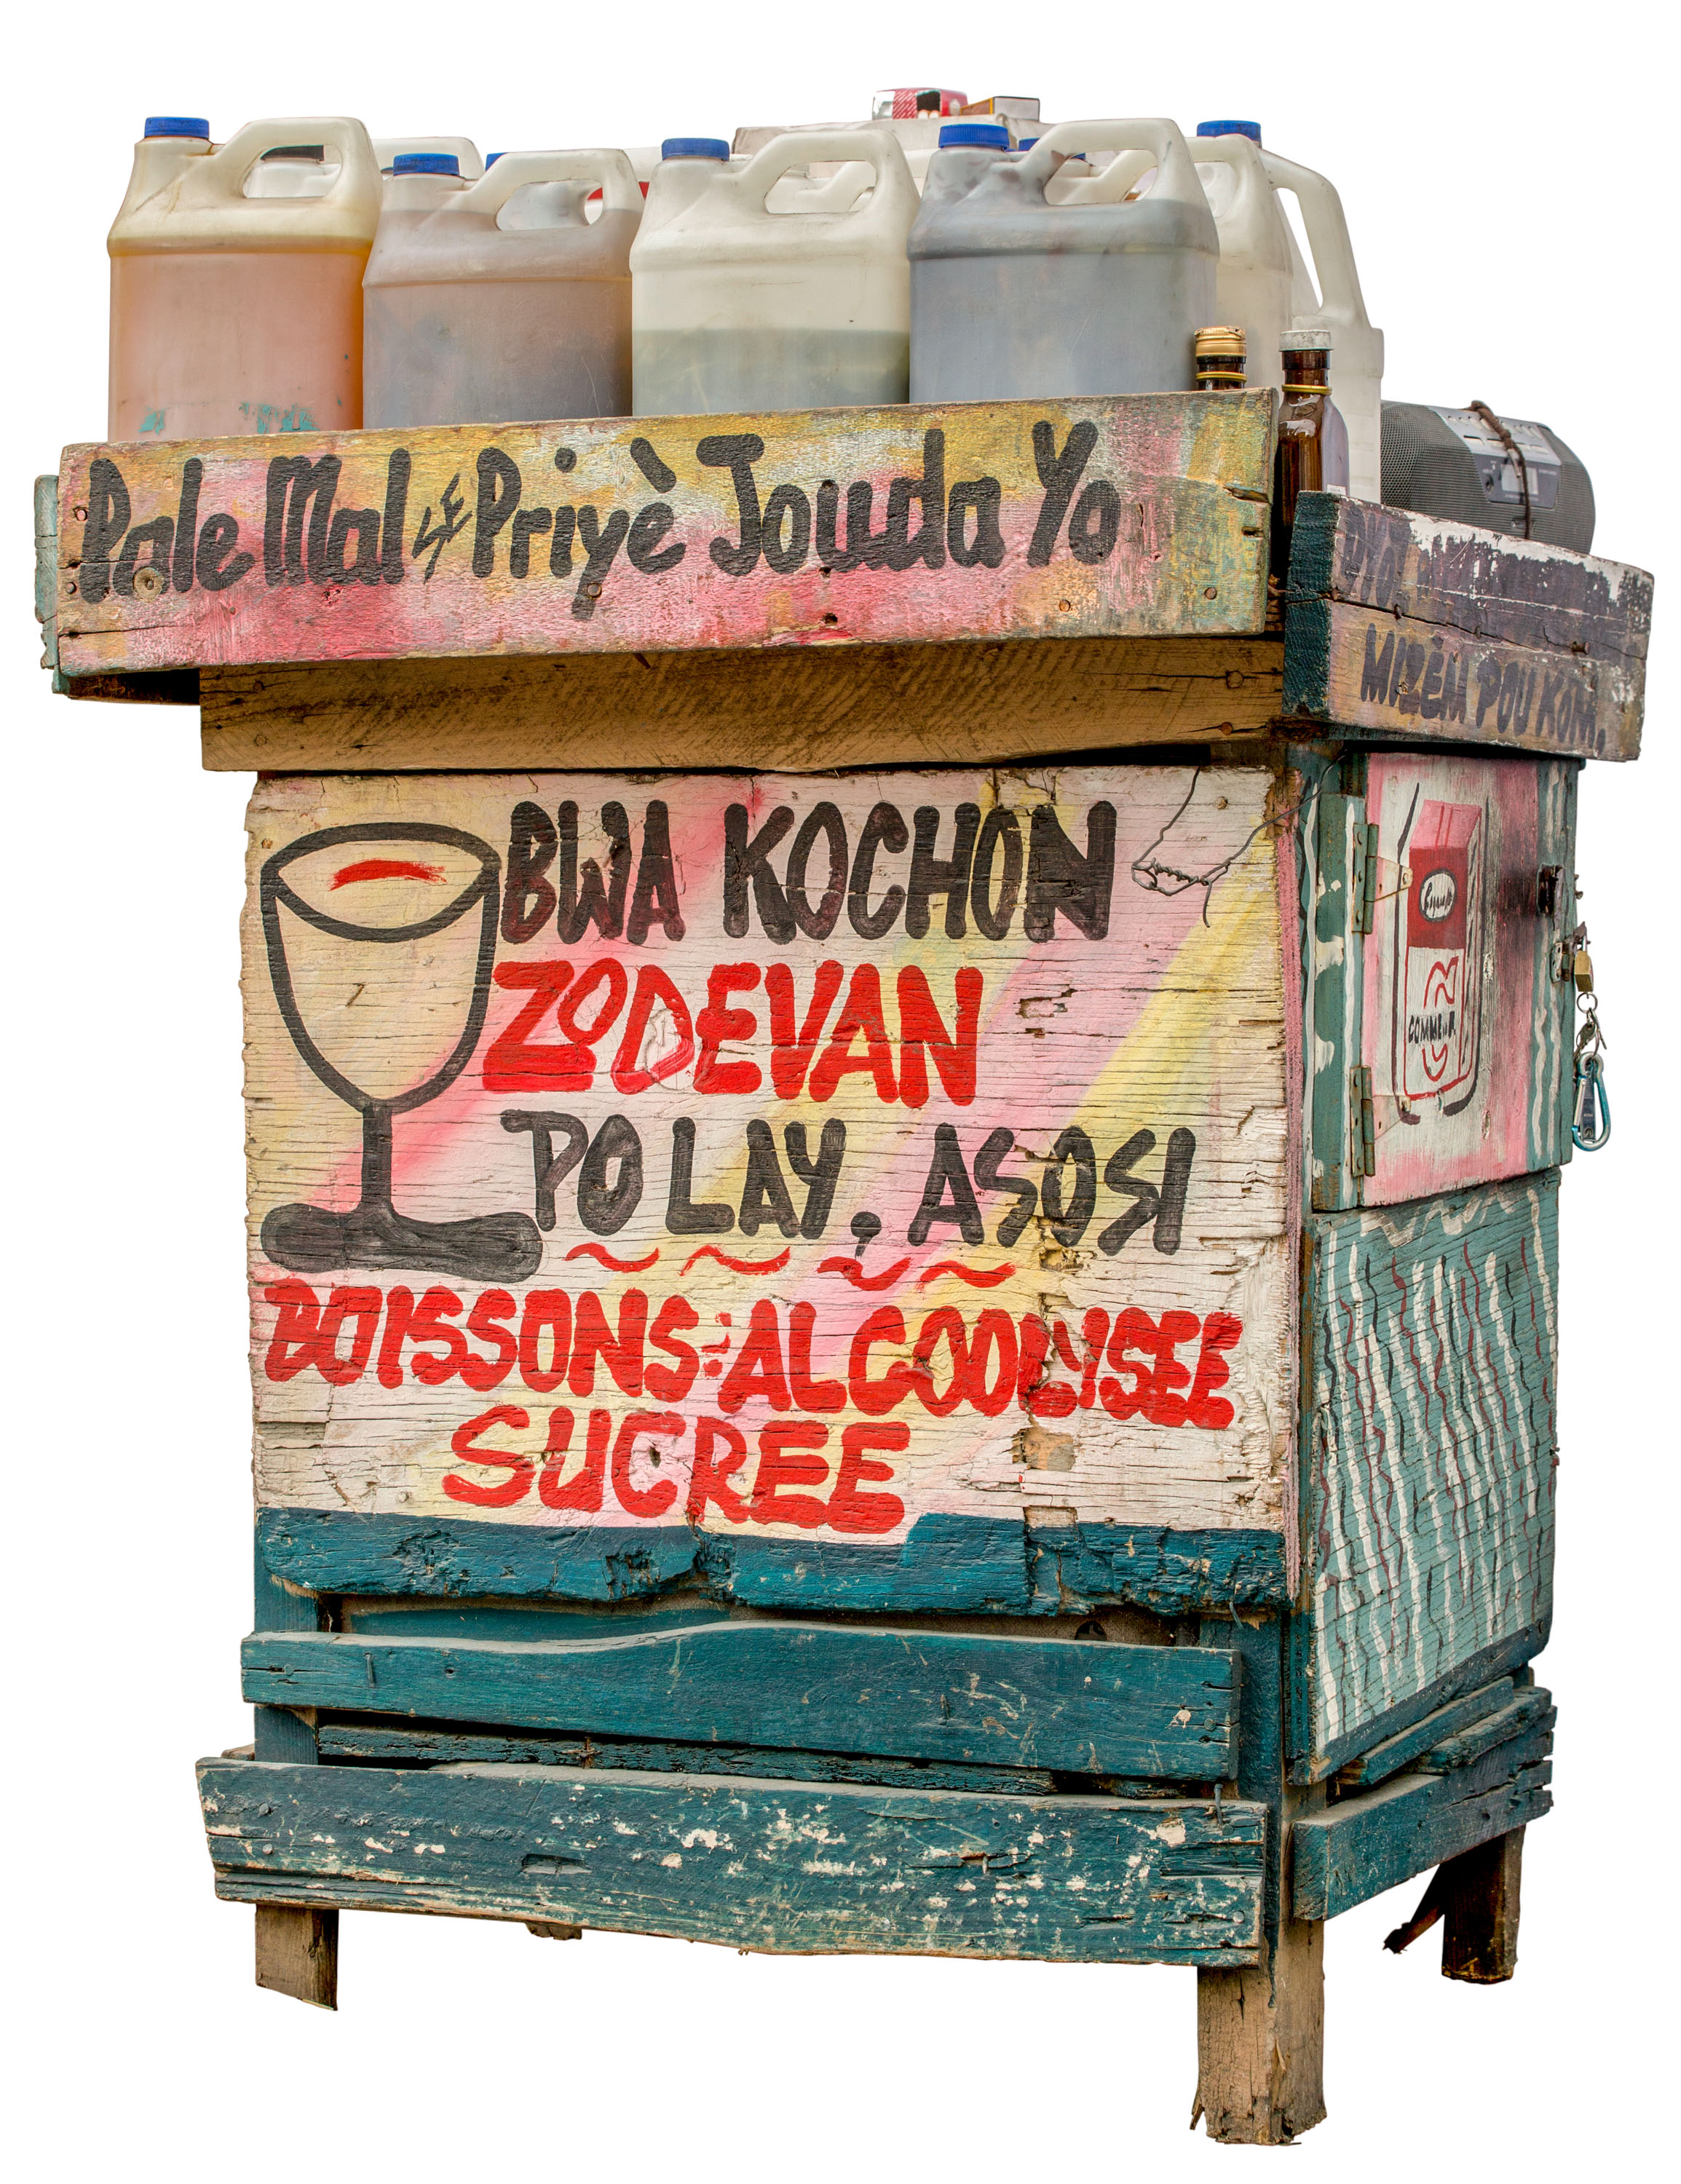 Pale Mal SE Priyè Jouda Yo
MIZÈM POU KONT.
BWA KOCHON
ZODEVAN
PO LAY, ASOSI
BOISSONS ALCOOLISEE
SUCREE